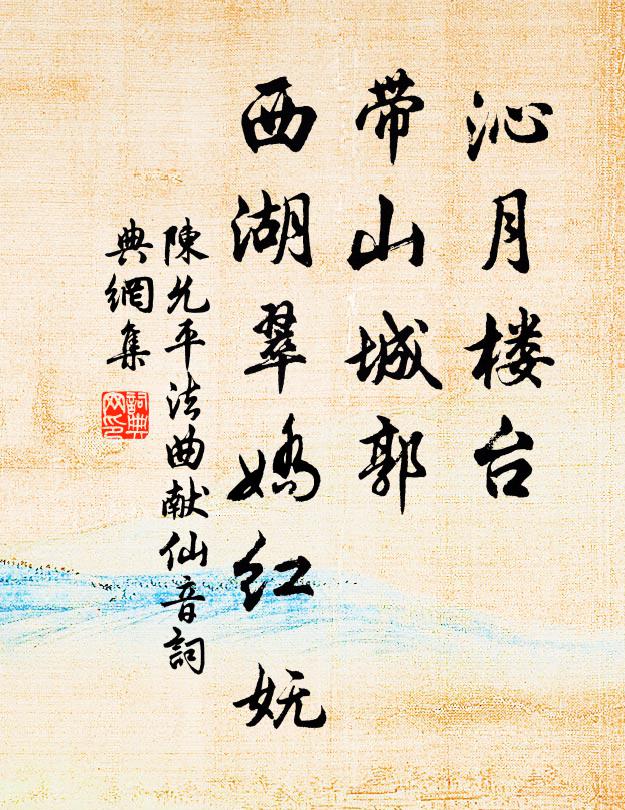 沁月楼台
带山城郭
西湖翠娇红妩
陳允平法曲献仙音詞
典網集
詞典网印